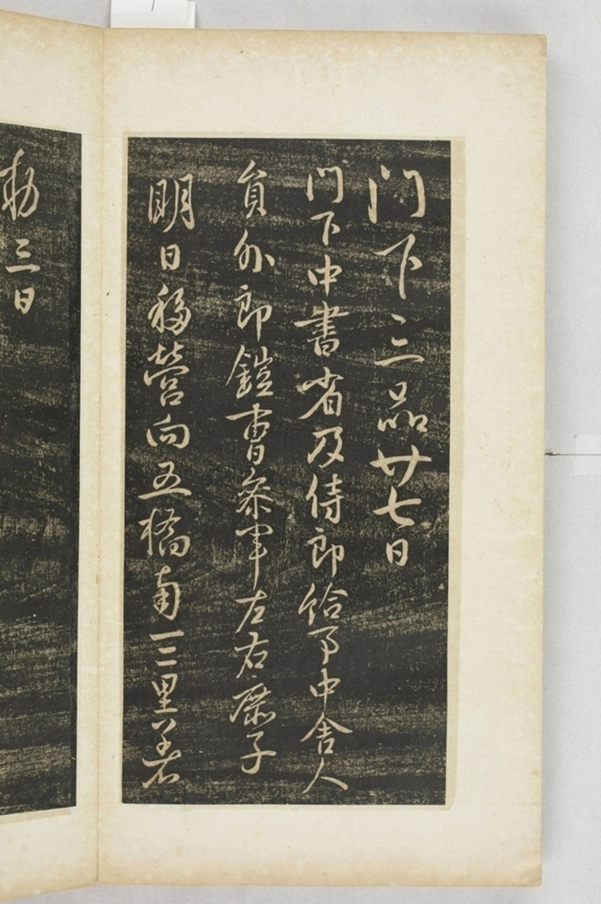 门下三品廿七日
门下中書省及侍郎給事中舍人
員外郎鎧曹參軍左右庶子
明日移營向五橋南一二里著
勑三日